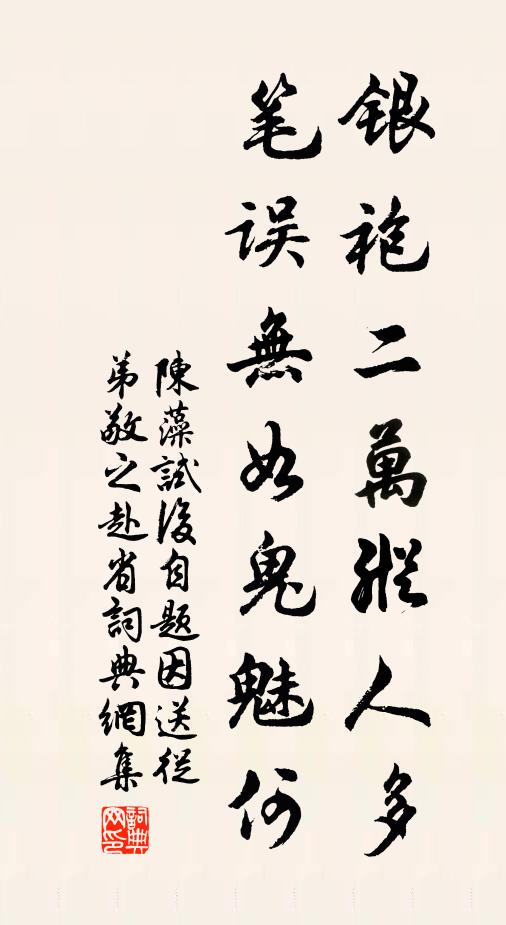 銀袍二萬縱人多
笔误無如鬼魅何
陳藻試後自題因送從
弟敬之赴省詞典網集
詞典
网印